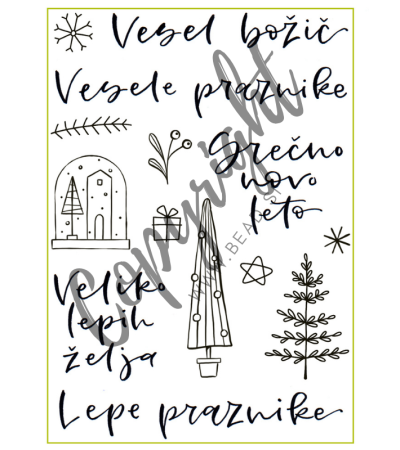 Vesel božič
Vesele praznike
Srečno
novo
leto
Veliko
lepih
želja
Lepe praznike
Copyright
WWW.BEAD.SI